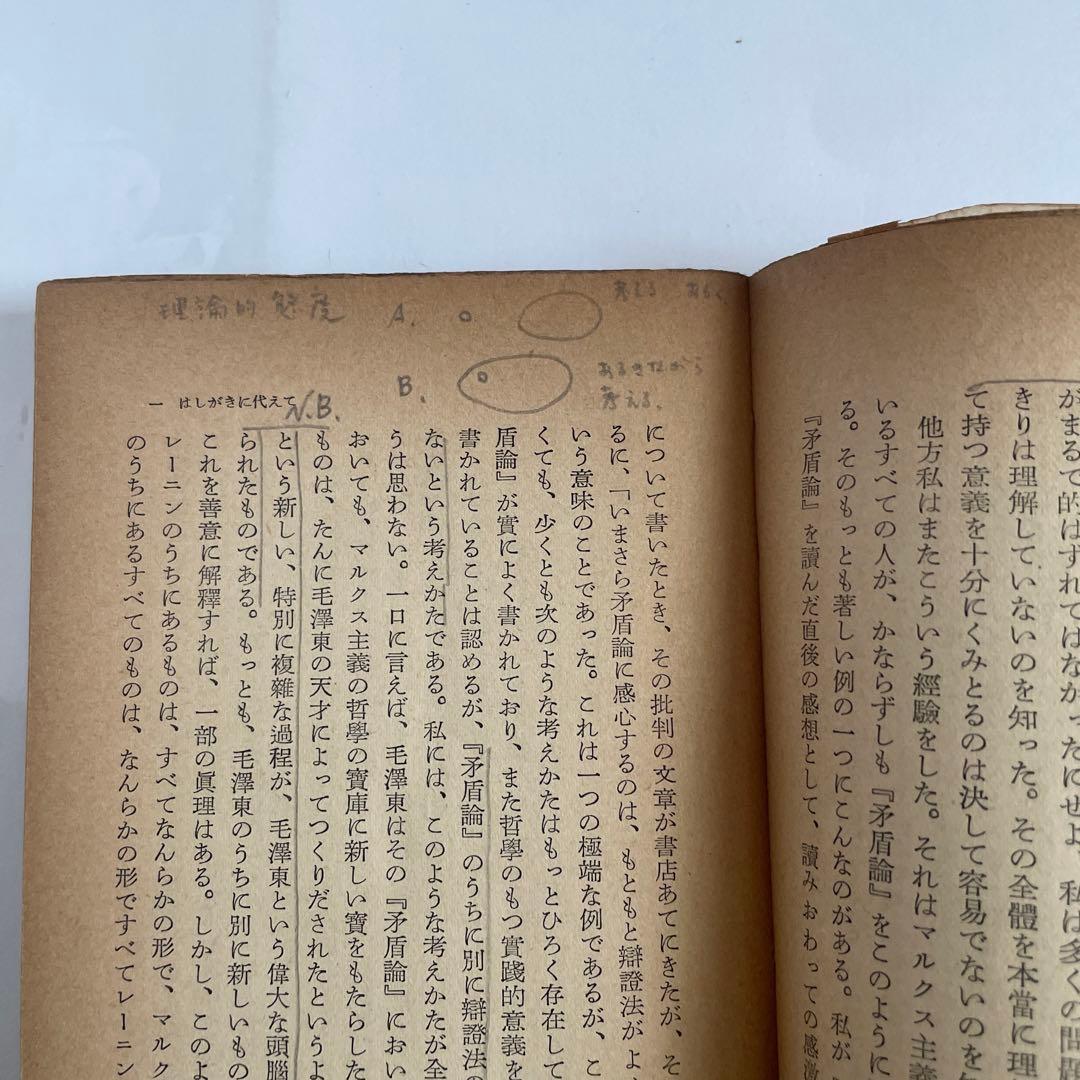 がまるで的はずれではなかったにせよ、私は多くの問題
きりは理解していないのを知った。その全體を本當に理
て持つ意義を十分にくみとるのは決して容易でないのを
他方私はまたこういう經驗をした。それはマルクス主義
いるすべての人が、かならずしも『矛盾論』をこのように
る。そのもっとも著しい例の一つにこんなのがある。私が
『矛盾論』を讀んだ直後の感想として、讀みおわっての感激
理論的態度 A. 考える あるく
B. あるきながら
考える。
一 はしがきに代えて
N.B.
について書いたとき、その批判の文章が書店あてにきたが、そ
るに、「いまさら矛盾論に感心するのは、もともと辯證法がよ
いう意味のことであった。これは一つの極端な例であるが、こ
くても、少くとも次のような考えかたはもっとひろく存在して
盾論』が實によく書かれており、また哲學のもつ實踐的意義を
書かれていることは認めるが、『矛盾論』のうちに別に辯證法の
ないという考えかたである。私には、このような考えかたが全
うは思わない。一口に言えば、毛澤東はその『矛盾論』におい
おいても、マルクス主義の哲學の寶庫に新しい寶をもたらした
ものは、たんに毛澤東の天才によってつくりだされたというよ
という新しい、特別に複雜な過程が、毛澤東という偉大な頭腦
られたものである。もっとも、毛澤東のうちに別に新しいもの
これを善意に解釋すれば、一部の眞理はある。しかし、このよ
レーニンのうちにあるものは、すべてなんらかの形で、マルク
のうちにあるすべてのものは、なんらかの形ですべてレーニン